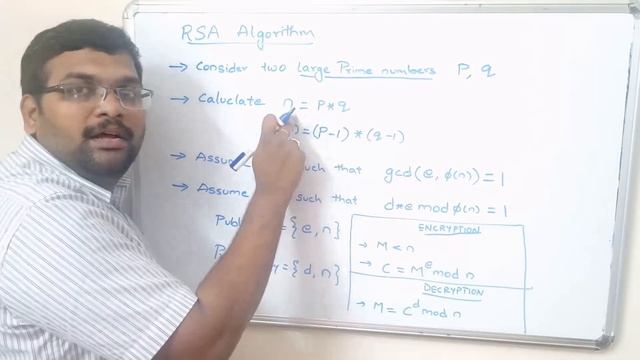 RSA Algorithm
→ Consider two large Prime numbers P, q
→ Caluclate n = P * q
= (P-1) * (q-1)
→ Assume such that gcd(e, ϕ(n)) = 1
→ Assume such that d*e mod ϕ(n) = 1
= {e, n}
= {d, n}
ENCRYPTION
→ M < n
→ C = M^e mod n
DECRYPTION
→ M = C^d mod n